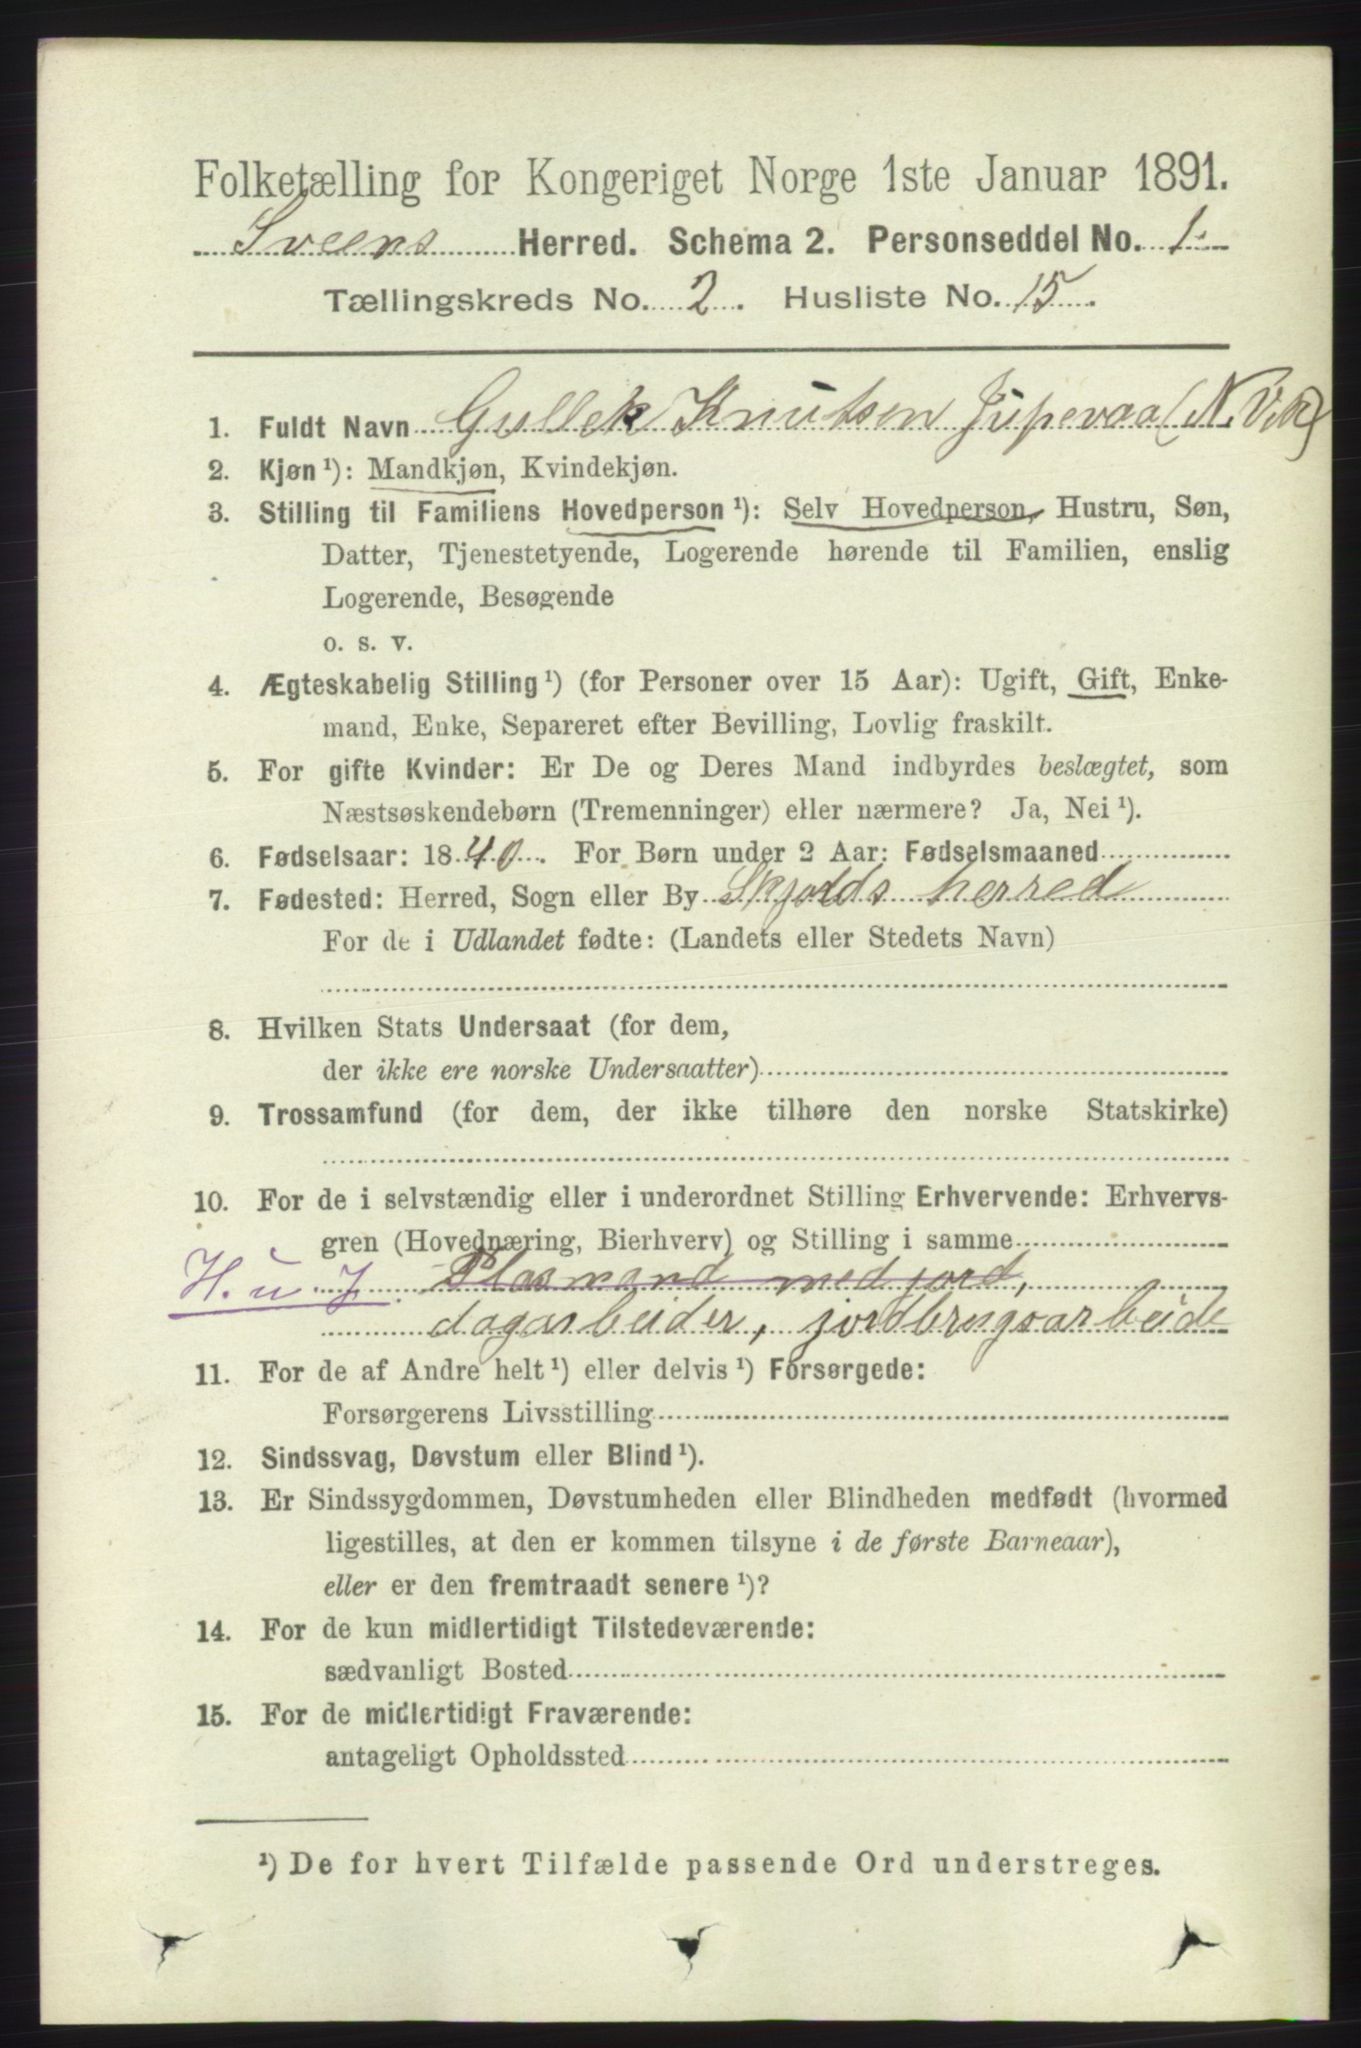 Folketælling for Kongeriget Norge 1ste Januar 1891.
Sveens Herred. Schema 2. Personseddel No. 1.
Tællingskreds No. 2. Husliste No. 15.
1. Fuldt Navn Gullek Knutsen Jupevaa (N. Vik)
2. Kjøn ¹): Mandkjøn, Kvindekjøn.
3. Stilling til Familiens Hovedperson ¹): Selv Hovedperson, Hustru, Søn,
Datter, Tjenestetyende, Logerende hørende til Familien, enslig
Logerende, Besøgende
o. s. v.
4. Ægteskabelig Stilling ¹) (for Personer over 15 Aar): Ugift, Gift, Enke-
mand, Enke, Separeret efter Bevilling, Lovlig fraskilt.
5. For gifte Kvinder: Er De og Deres Mand indbyrdes beslægtet, som
Næstsøskendebørn (Tremenninger) eller nærmere? Ja, Nei ¹).
6. Fødselsaar: 1840. For Børn under 2 Aar: Fødselsmaaned
7. Fødested: Herred, Sogn eller By Skjolds herred
For de i Udlandet fødte: (Landets eller Stedets Navn)
8. Hvilken Stats Undersaat (for dem,
der ikke ere norske Undersaatter)
9. Trossamfund (for dem, der ikke tilhøre den norske Statskirke)
10. For de i selvstændig eller i underordnet Stilling Erhvervende: Erhvervs-
gren (Hovednæring, Bierhverv) og Stilling i samme
H. u. J. Plasmand med jord,
dagarbeider, jordbrugsarbeide
11. For de af Andre helt ¹) eller delvis ¹) Forsørgede:
Forsørgerens Livsstilling
12. Sindssvag, Døvstum eller Blind ¹).
13. Er Sindssygdommen, Døvstumheden eller Blindheden medfødt (hvormed
ligestilles, at den er kommen tilsyne i de første Barneaar),
eller er den fremtraadt senere ¹)?
14. For de kun midlertidigt Tilstedeværende:
sædvanligt Bosted
15. For de midlertidigt Fraværende:
antageligt Opholdssted
¹) De for hvert Tilfælde passende Ord understreges.